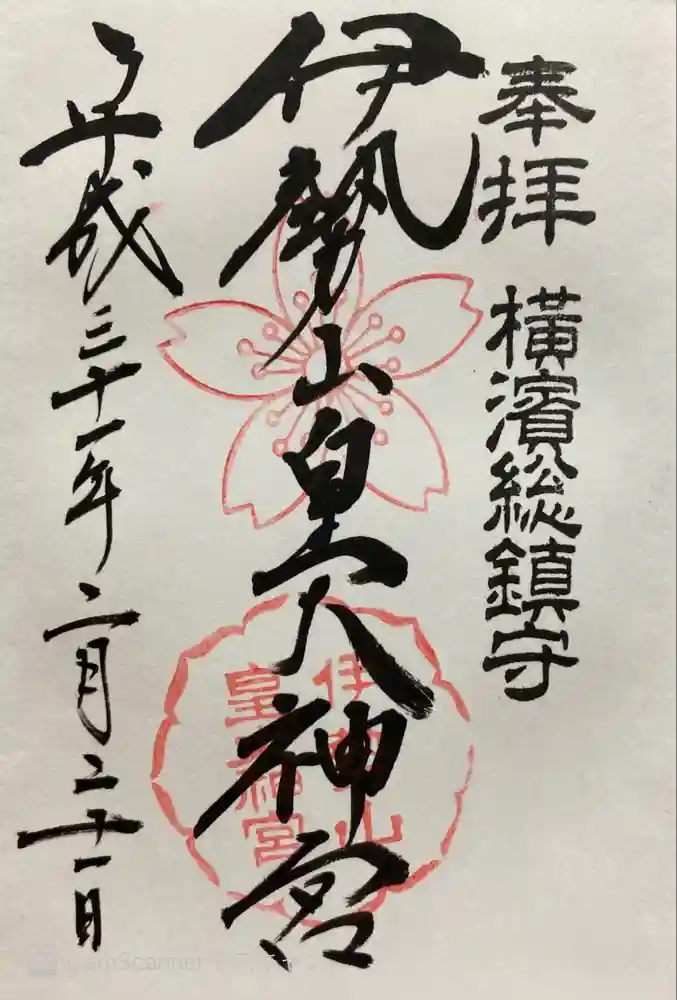 奉拝 横濱総鎮守
伊勢山皇大神宮
平成三十一年二月二十一日
伊勢山
皇大神宮
CamScanner